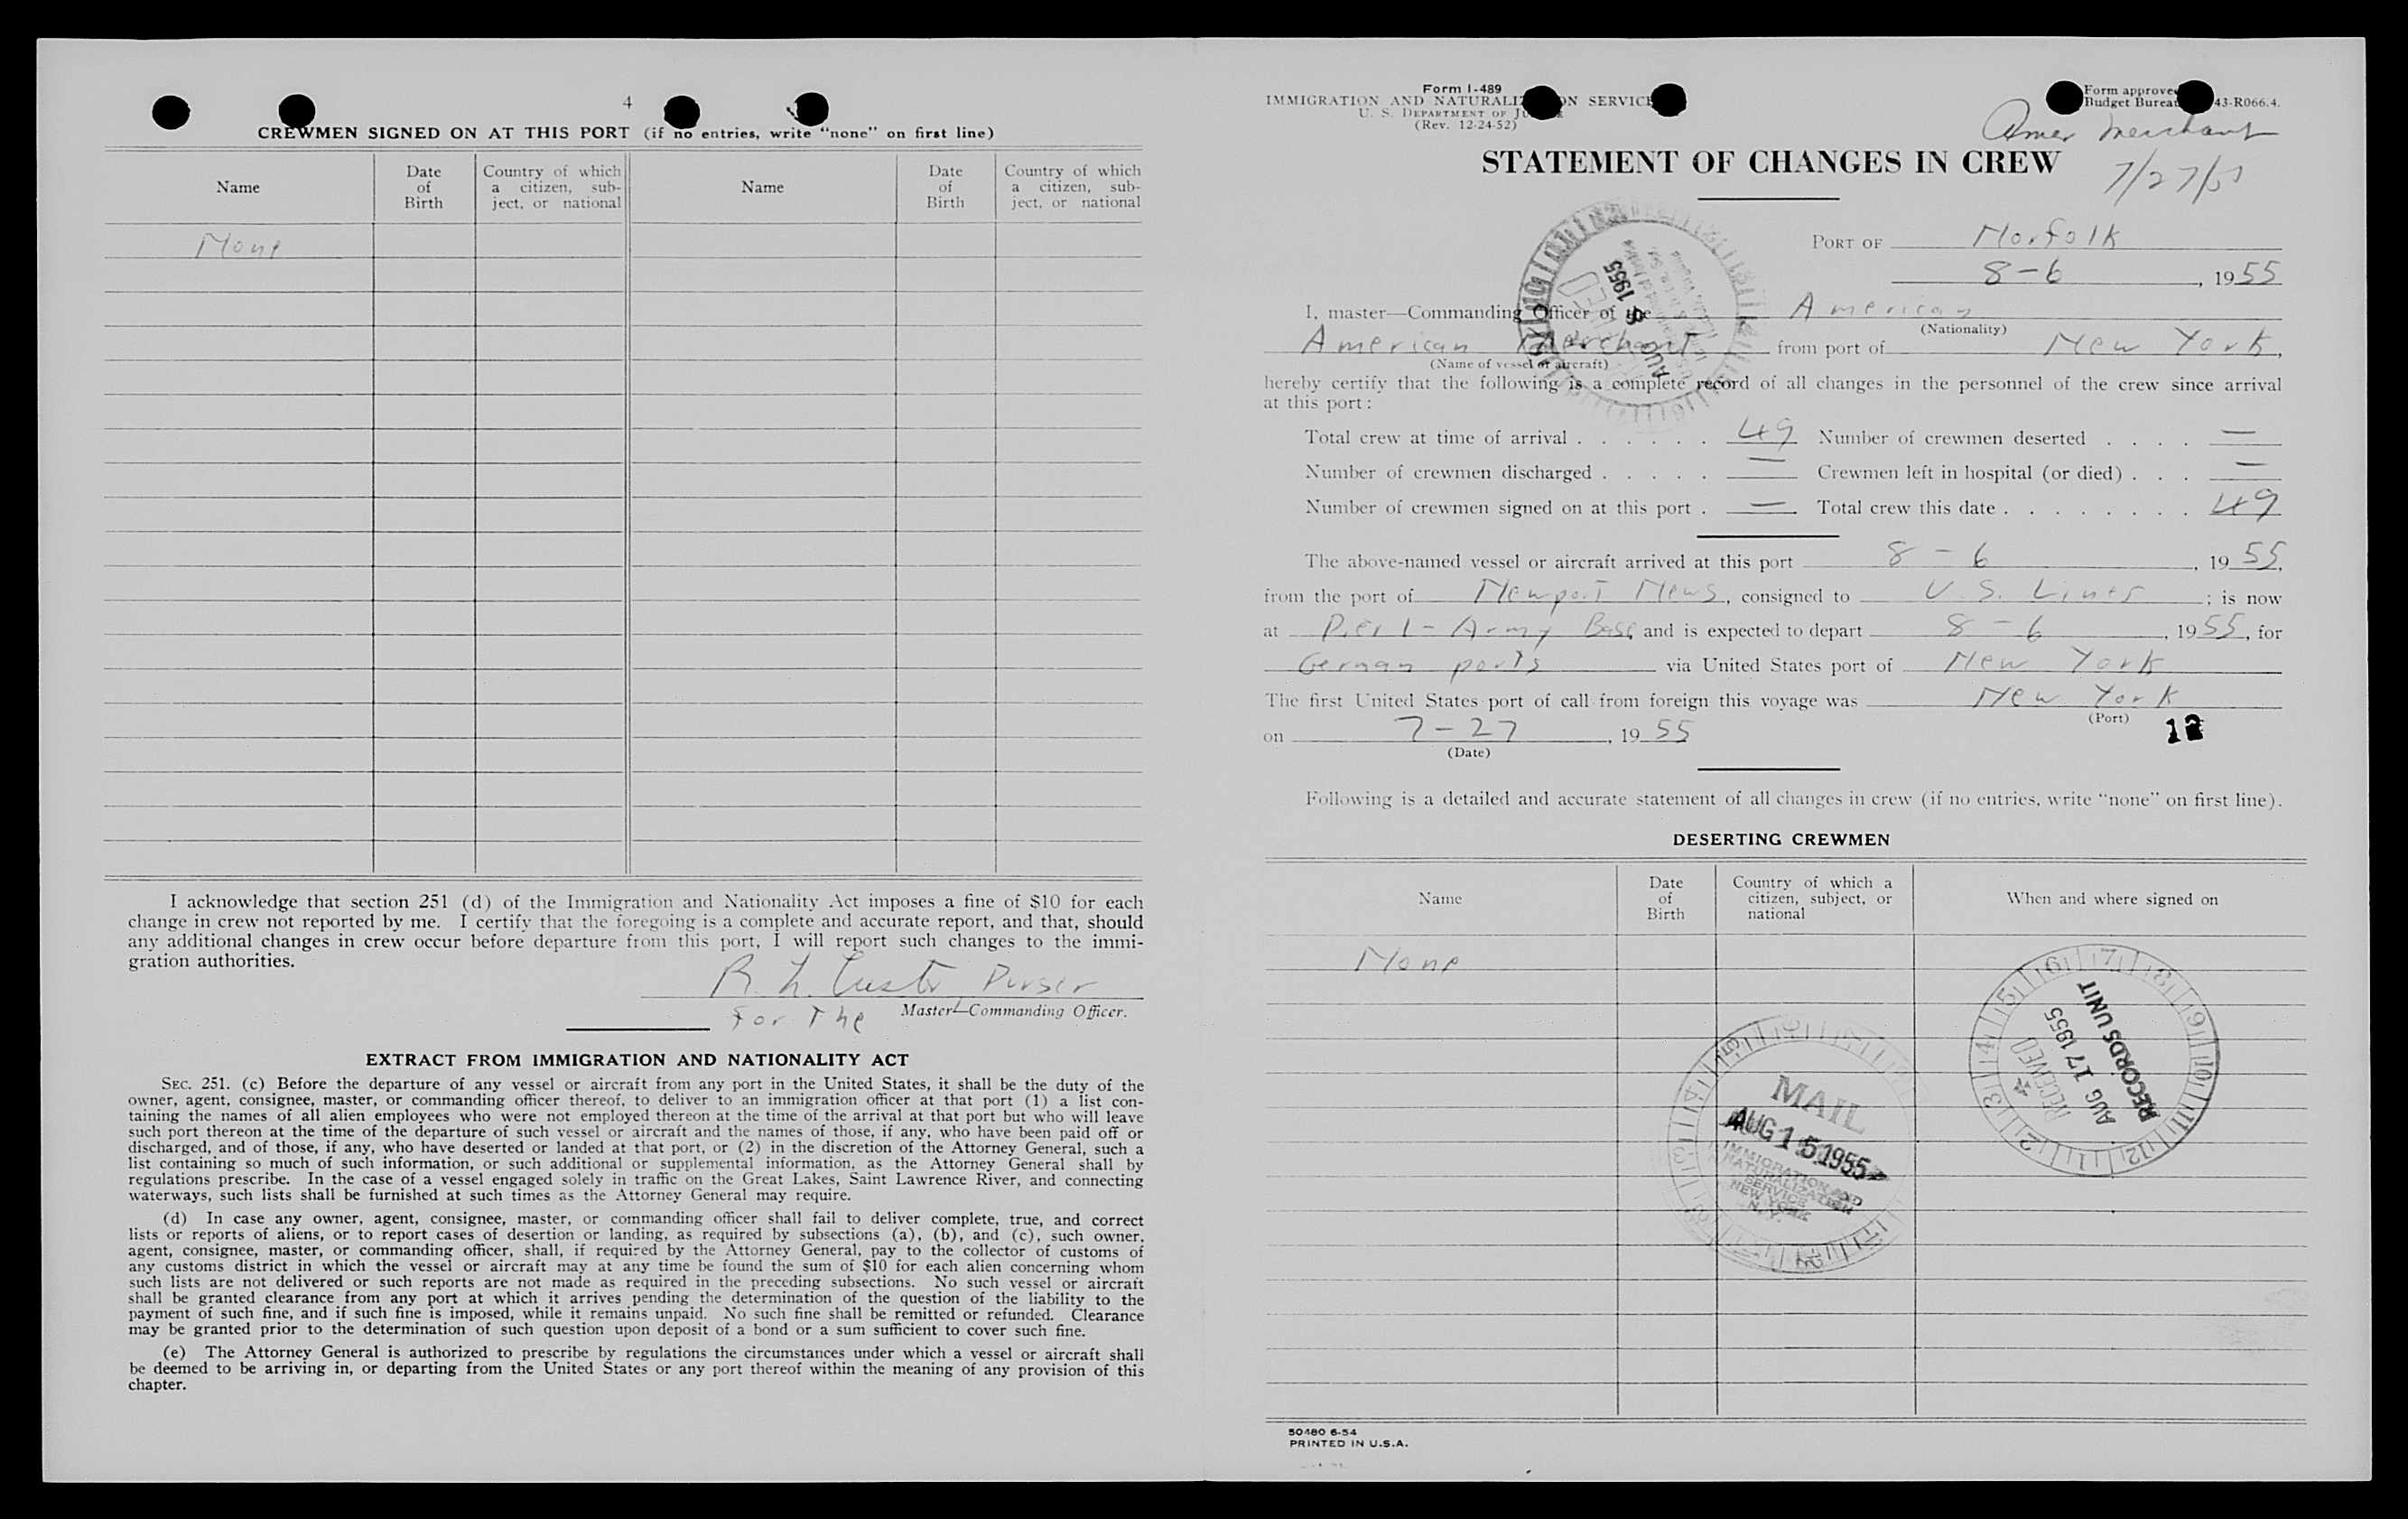 4
CREWMEN SIGNED ON AT THIS PORT (if no entries, write "none" on first line)
Name
Date of Birth
Country of which a citizen, sub-ject, or national
Name
Date of Birth
Country of which a citizen, sub-ject, or national
None
I acknowledge that section 251 (d) of the Immigration and Nationality Act imposes a fine of $10 for each
change in crew not reported by me. I certify that the foregoing is a complete and accurate report, and that, should
any additional changes in crew occur before departure from this port, I will report such changes to the immi-
gration authorities.
R. L. Custer Purser
For The Master—Commanding Officer.
EXTRACT FROM IMMIGRATION AND NATIONALITY ACT
SEC. 251. (c) Before the departure of any vessel or aircraft from any port in the United States, it shall be the duty of the
owner, agent, consignee, master, or commanding officer thereof, to deliver to an immigration officer at that port (1) a list con-
taining the names of all alien employees who were not employed thereon at the time of the arrival at that port but who will leave
such port thereon at the time of the departure of such vessel or aircraft and the names of those, if any, who have been paid off or
discharged, and of those, if any, who have deserted or landed at that port, or (2) in the discretion of the Attorney General, such a
list containing so much of such information, or such additional or supplemental information, as the Attorney General shall by
regulations prescribe. In the case of a vessel engaged solely in traffic on the Great Lakes, Saint Lawrence River, and connecting
waterways, such lists shall be furnished at such times as the Attorney General may require.
(d) In case any owner, agent, consignee, master, or commanding officer shall fail to deliver complete, true, and correct
lists or reports of aliens, or to report cases of desertion or landing, as required by subsections (a), (b), and (c), such owner,
agent, consignee, master, or commanding officer, shall, if required by the Attorney General, pay to the collector of customs of
any customs district in which the vessel or aircraft may at any time be found the sum of $10 for each alien concerning whom
such lists are not delivered or such reports are not made as required in the preceding subsections. No such vessel or aircraft
shall be granted clearance from any port at which it arrives pending the determination of the question of the liability to the
payment of such fine, and if such fine is imposed, while it remains unpaid. No such fine shall be remitted or refunded. Clearance
may be granted prior to the determination of such question upon deposit of a bond or a sum sufficient to cover such fine.
(e) The Attorney General is authorized to prescribe by regulations the circumstances under which a vessel or aircraft shall
be deemed to be arriving in, or departing from the United States or any port thereof within the meaning of any provision of this
chapter.
Form I-489
IMMIGRATION AND NATURALIZATION SERVICE
U. S. DEPARTMENT OF JUSTICE
(Rev. 12-24-52)
Form approved
Budget Bureau 43-R066.4.
Amer Merchant
7/27/55
STATEMENT OF CHANGES IN CREW
PORT OF Norfolk
8-6, 1955
I, master—Commanding Officer of the American
(Nationality)
American Merchant from port of New York,
(Name of vessel or aircraft)
AUG 6 1955
hereby certify that the following is a complete record of all changes in the personnel of the crew since arrival
at this port:
Total crew at time of arrival . . . . . . 49 Number of crewmen deserted . . . . —
Number of crewmen discharged . . . . . — Crewmen left in hospital (or died) . . . —
Number of crewmen signed on at this port . — Total crew this date . . . . . . . . 49
The above-named vessel or aircraft arrived at this port 8 - 6, 1955,
from the port of Newport News, consigned to U. S. Lines; is now
at Pier 1 - Army Base and is expected to depart 8 - 6, 1955, for
German ports via United States port of New York
The first United States port of call from foreign this voyage was New York
(Port)
on 7-27, 1955
(Date)
12
Following is a detailed and accurate statement of all changes in crew (if no entries, write "none" on first line).
DESERTING CREWMEN
Name
Date of Birth
Country of which a citizen, subject, or national
When and where signed on
None
RECEIVED
AUG 17 1955
RECORDS UNIT
MAIL
AUG 15 1955
IMMIGRATION AND
NATURALIZATION
SERVICE
NEW YORK
N. Y.
50480 6-54
PRINTED IN U.S.A.